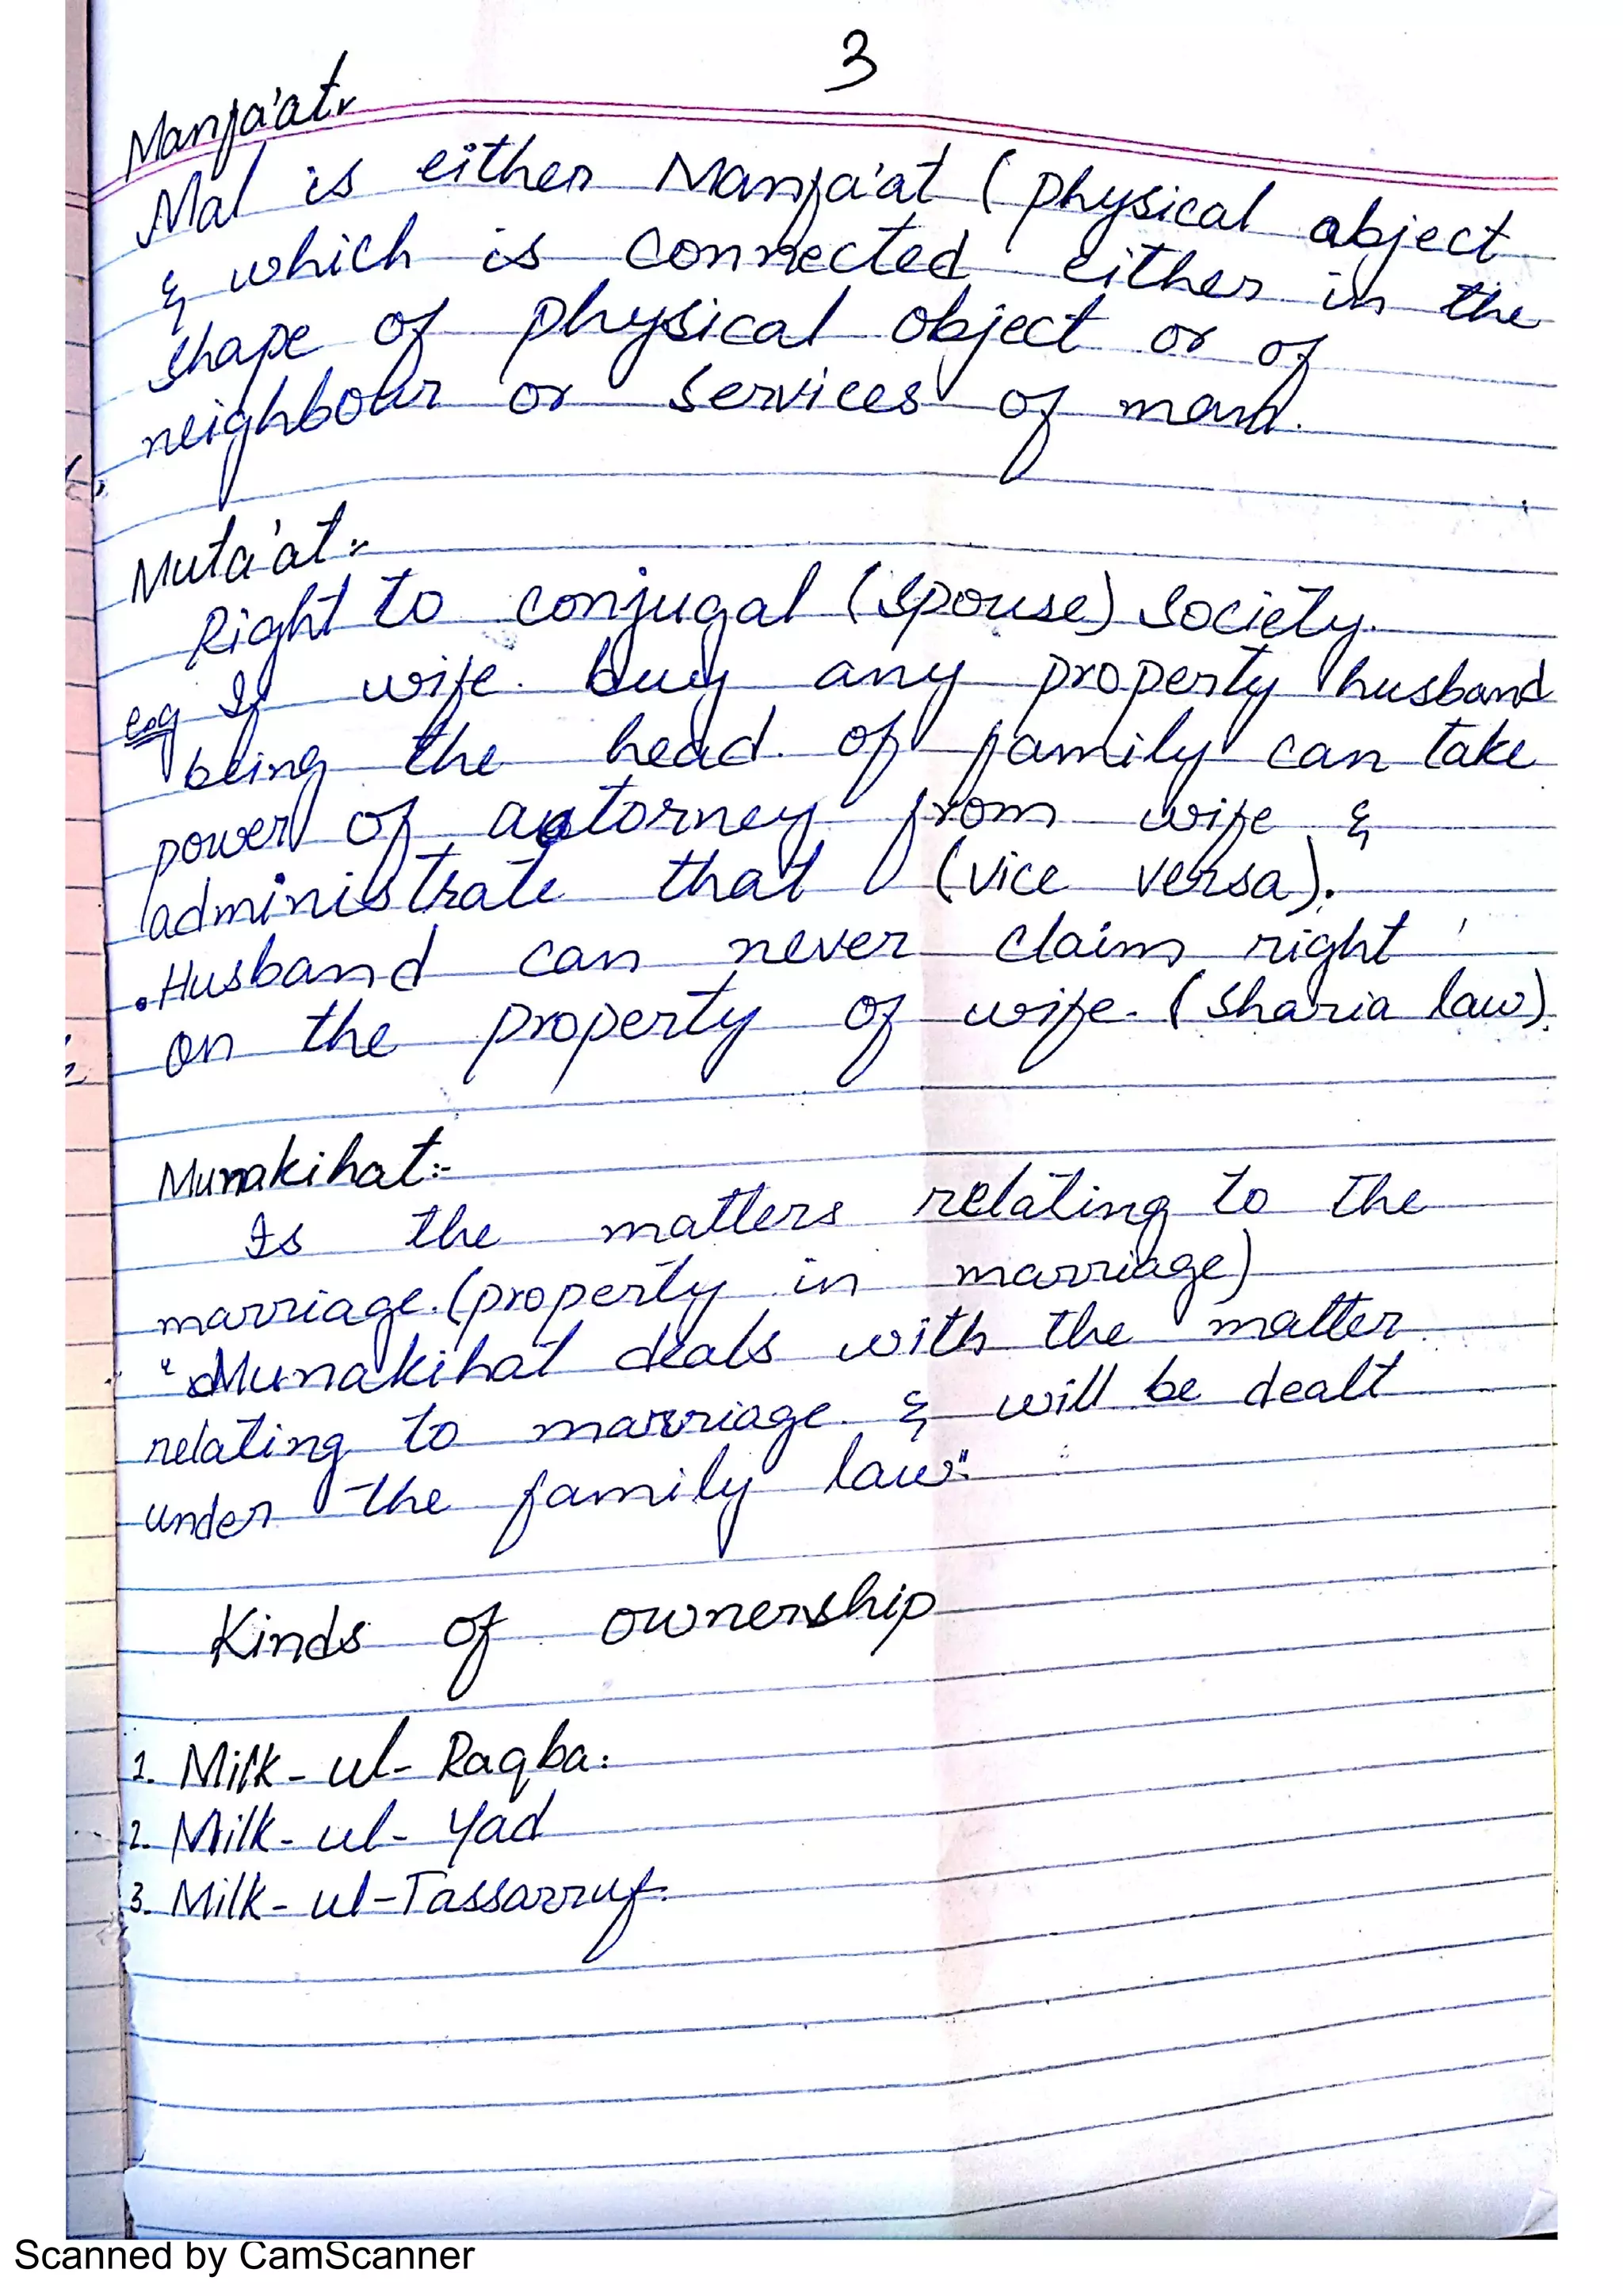 3
Manfa'at:-
Mal is either Manfa'at (physical object
& which is connected either in the
shape of physical object or of
neighbour or services of man.
Muta'at:-
Right to conjugal (spouse) society.
e.g If wife buy any property husband
being the head of family can take
power of autorney from wife &
administrate that (vice versa).
• Husband can never claim right
on the property of wife. (Sharia law).
Munakihat:-
Is the matters relating to the
marriage. (property in marriage)
"Munakihat deals with the matter
relating to marriage & will be dealt
under the family law".
Kinds of ownership
1. Milk-ul-Raqba:
2. Milk-ul-Yad
3. Milk-ul-Tassarruf.
Scanned by CamScanner